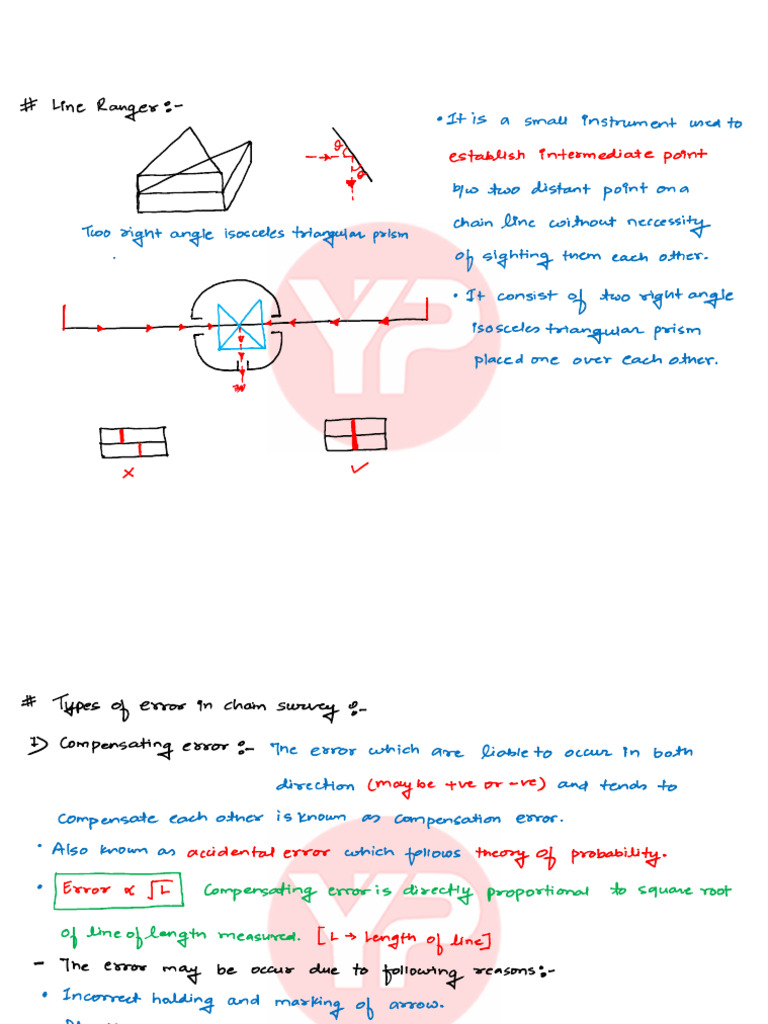 # Line Ranger:-
• It is a small instrument used to
establish intermediate point
b/w two distant point on a
chain line without neccessity
of sighting them each other.
• It consist of two right angle
isosceles triangular prism
placed one over each other.
Two right angle isosceles triangular prism
YP
# Types of error in chain survey :-
1) Compensating error :- The error which are liable to occur in both
direction (may be +ve or -ve) and tends to
compensate each other is known as compensation error.
• Also known as accidental error which follows theory of probability.
• Error ∝ √L Compensating error is directly proportional to square root
of line of length measured. [L → Length of line]
- The error may be occur due to following reasons:-
• Incorrect halding and marking of arrow.
YP